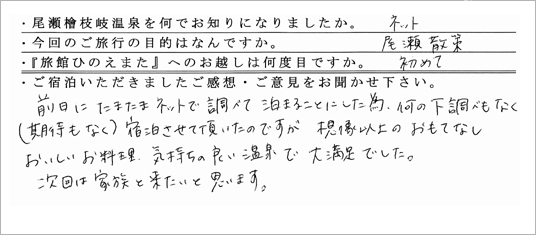 ・尾瀬檜枝岐温泉を何でお知りになりましたか。 ネット
・今回のご旅行の目的はなんですか。 尾瀬散策
・『旅館ひのえまた』へのお越しは何度目ですか。 初めて
・ご宿泊いただきましたご感想・ご意見をお聞かせ下さい。
前日にたまたまネットで調べて泊まることにした為、何の下調べもなく
(期待もなく)宿泊させて頂いたのですが 想像以上のおもてなし
おいしいお料理、気持ちの良い温泉で大満足でした。
次回は家族と来たいと思います。